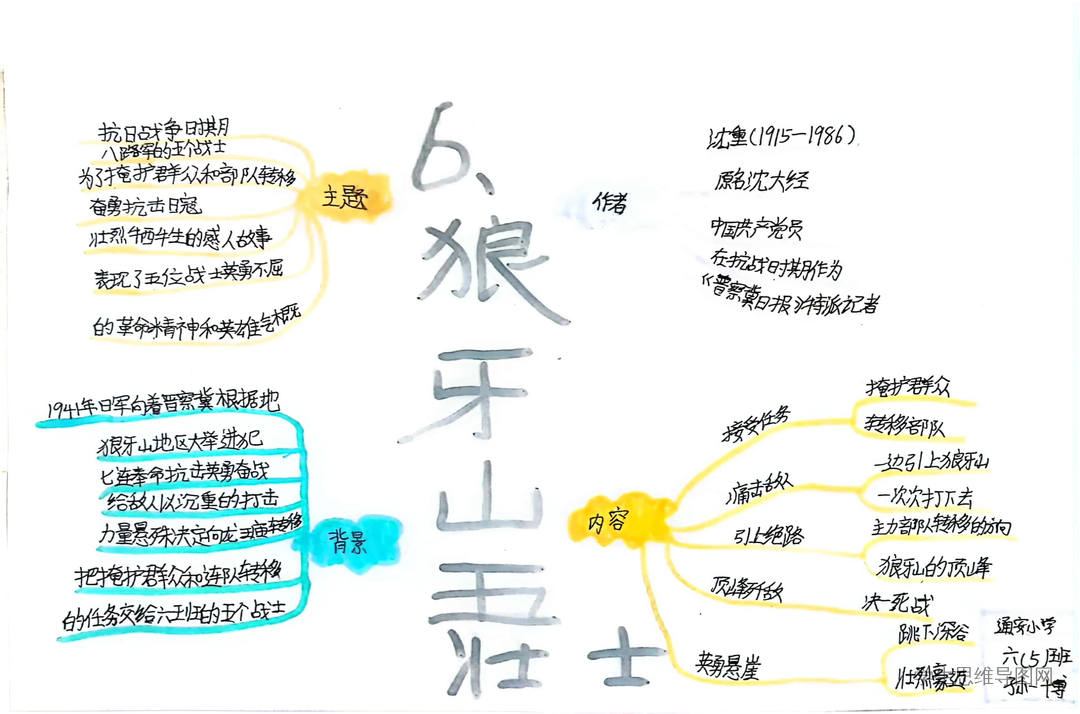 6、狼牙山五壮士
主题
抗日战争时期
八路军的五个战士
为了掩护群众和部队转移
奋勇抗击日寇
壮烈牺牲的感人故事
表现了五位战士英勇不屈
的革命精神和英雄气概
作者
沈重(1915—1986)
原名沈大经
中国共产党员
在抗战时期作为
《晋察冀日报》特派记者
背景
1941年日军向着晋察冀根据地
狼牙山地区大举进犯
七连奉命抗击英勇奋战
给敌人以沉重的打击
力量悬殊决定向龙王庙转移
把掩护群众和连队转移
的任务交给六班的五个战士
内容
接受任务
掩护群众
转移部队
痛击敌人
一边引上狼牙山
一次次打下去
引上绝路
主力部队转移的方向
狼牙山的顶峰
顶峰歼敌
决一死战
英勇悬崖
跳下深谷
壮烈豪迈
思维导图网
小学
六(5)班
孙一博